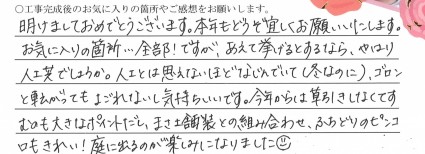 ○工事完成後のお気に入りの箇所やご感想をお願いします。
明けましておめでとうございます。本年もどうぞ宜しくお願いいたします。
お気に入りの箇所…全部!ですが、あえて挙げるとするなら、やはり
人工芝でしょうか。人工とは思えないほどなじんでいて(冬なのに)、ゴロン
と転がってもよごれないし気持ちいいです。今年からは草引きしなくてす
むのも大きなポイントだし、まさ土舗装との組み合わせ、ふちどりのピンコ
ロもきれい!庭に出るのが楽しみになりました